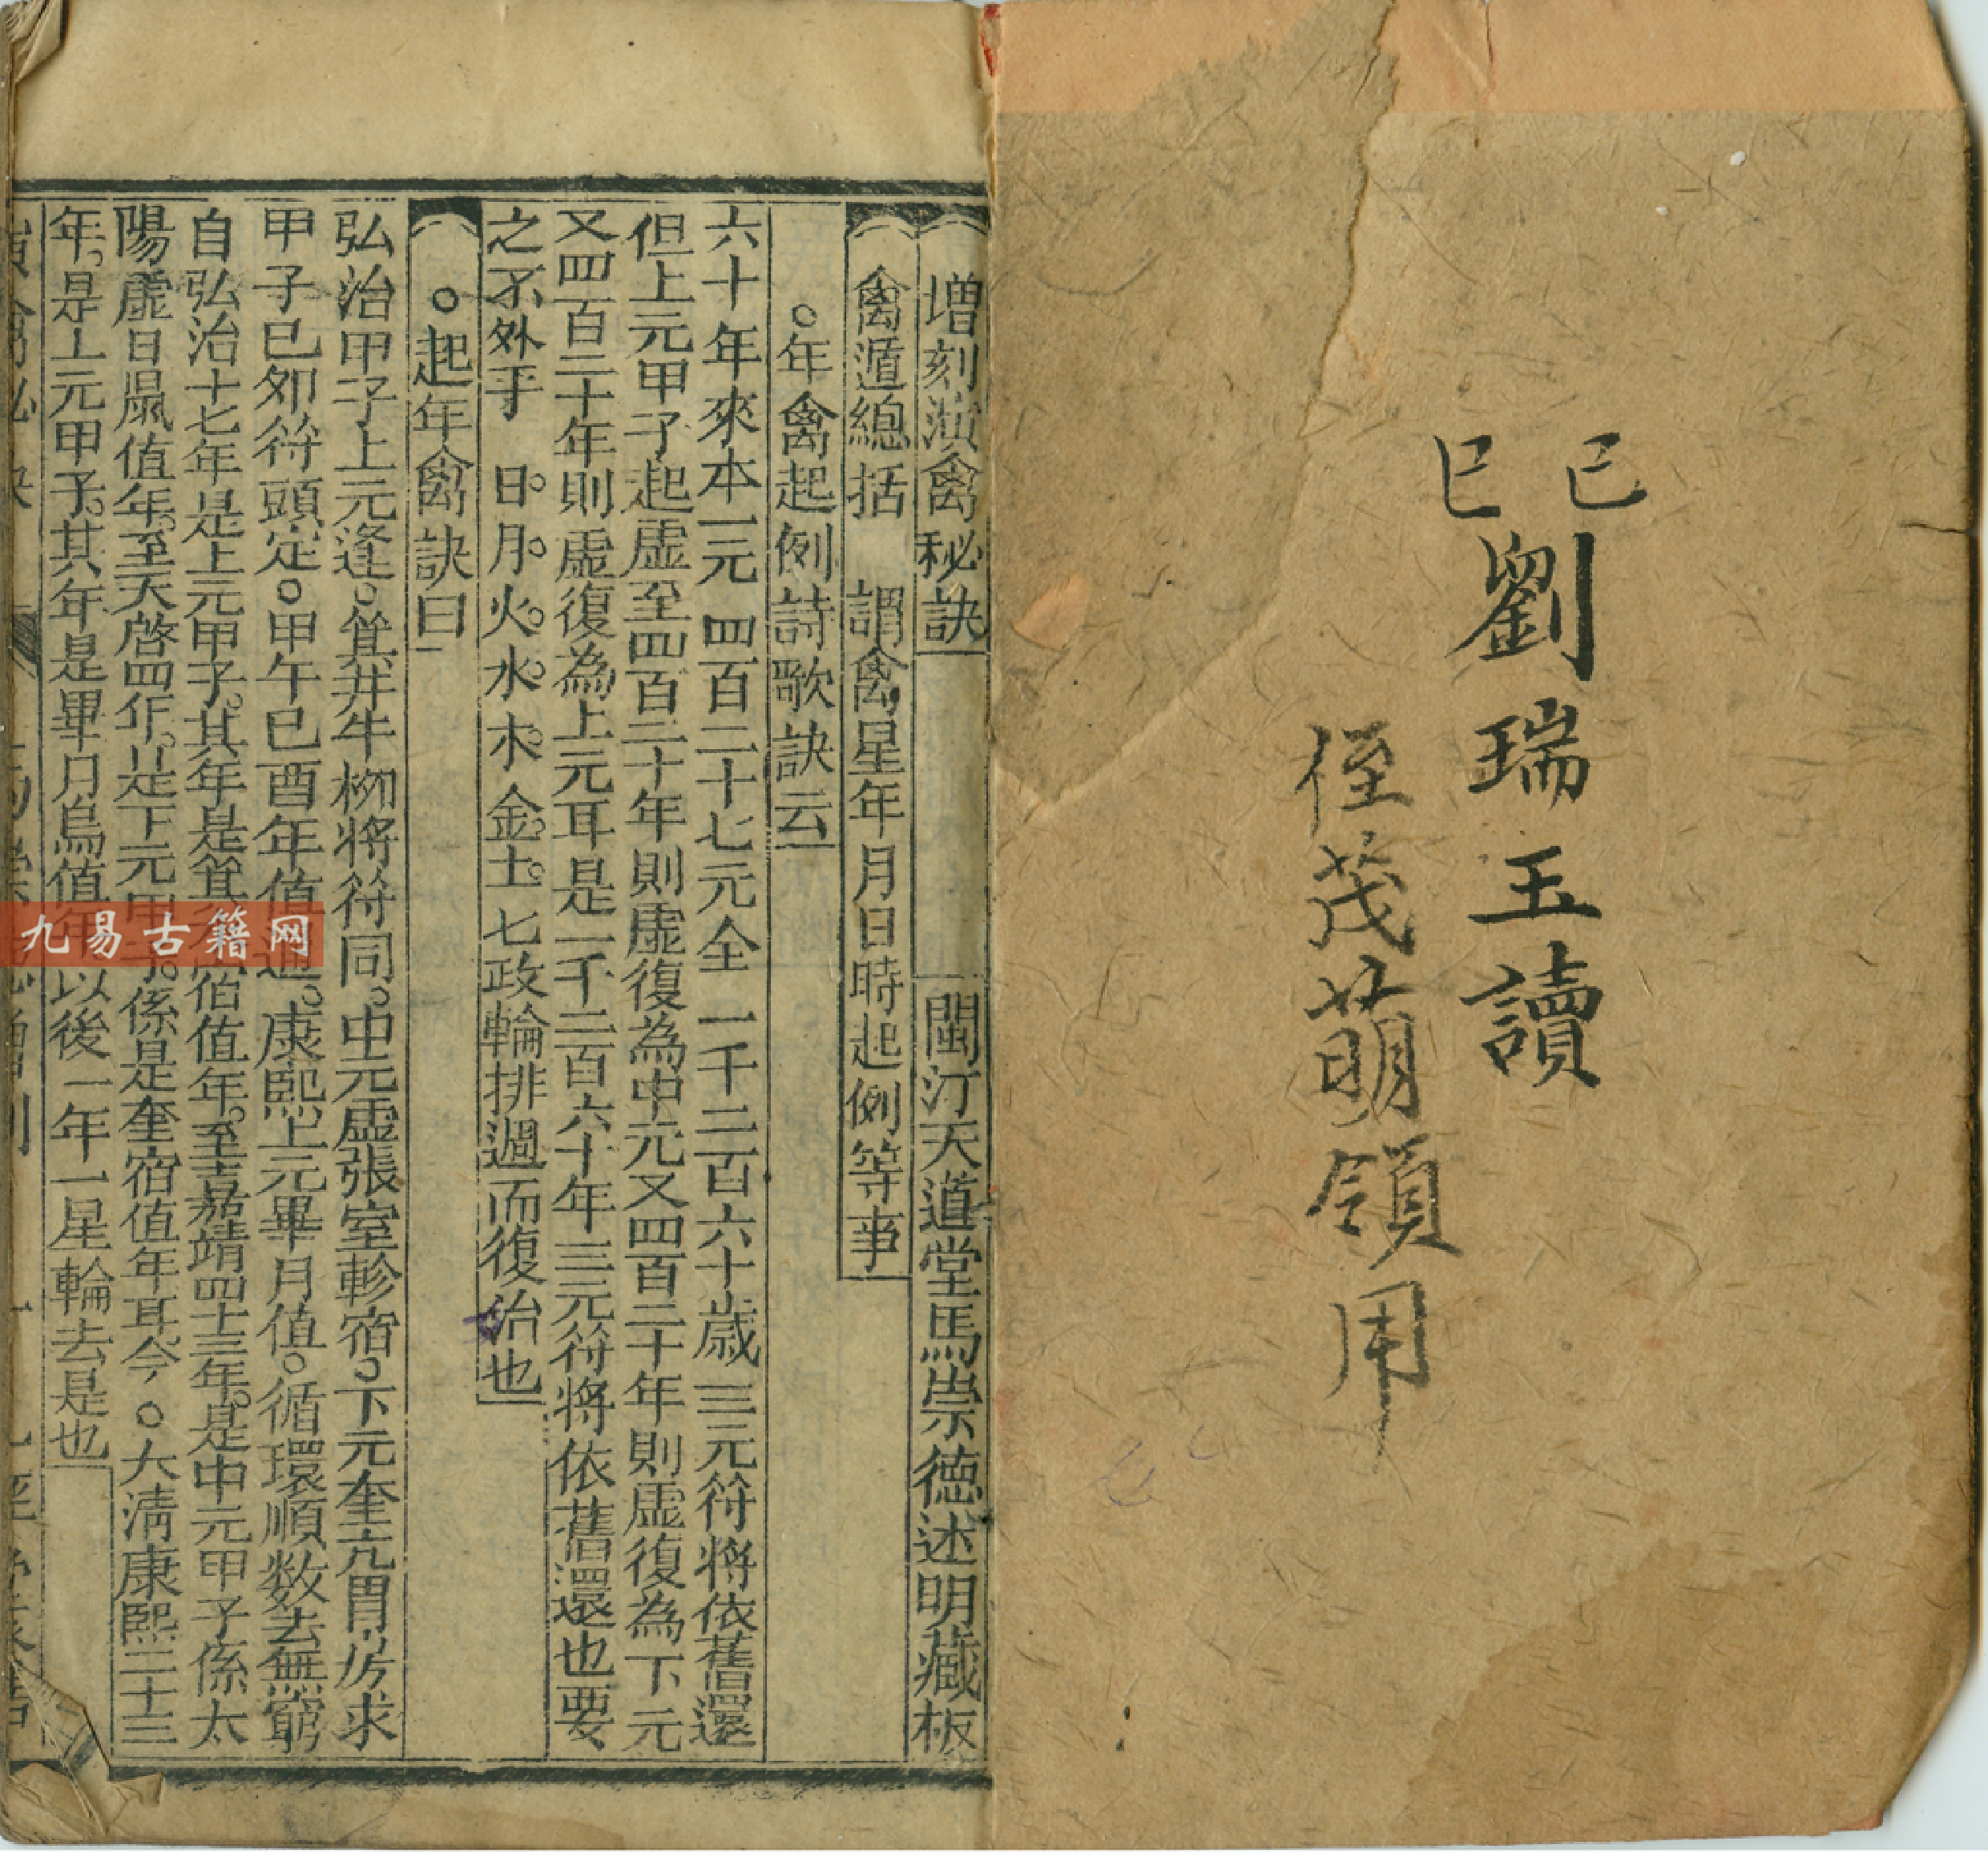 己巳
劉瑞玉讀
侄茂萌領用
增刻演禽秘訣 閩汀天道堂馬崇德述明藏板
禽遁總括 謂禽星年月日時起例等事
○年禽起例詩歌訣云
六十年來本一元四百二十七元全一千二百六十歲三元符將依舊還
但上元甲子起虛至四百二十年則虛復為中元又四百二十年則虛復為下元
又四百二十年則虛復為上元耳是一千二百六十年三元符將依舊還也要
之不外乎 日。月。火。水。木。金。土。七政輪排週而復治也
○起年禽訣曰
弘治甲子上元逢。箕井牛柳將符同。中元虛張室軫宿。下元奎亢胃房求
甲子巳夘符頭定。甲午巳酉年值週。康熙上元畢月值。循環順数去無窮
自弘治十七年是上元甲子。其年是箕 值年。至嘉靖四十三年。是中元甲子係太
陽虛日鼠值年。至天啓四年。是下元甲子。係是奎宿值年耳。今。○大清康熙二十三
年。是上元甲子。其年是畢月烏值年以後一年一星輪去是也
九易古籍网